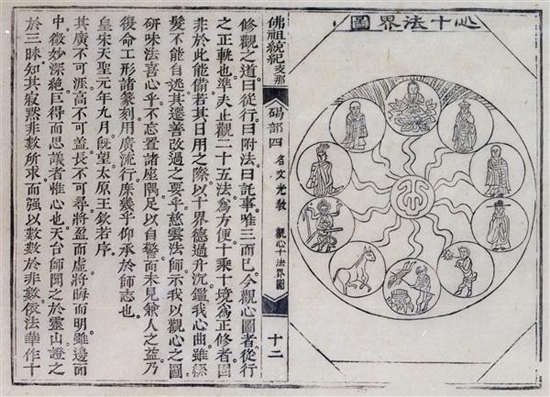 心十法界圖
佛祖統紀 支那
碼部四 名文光教 觀心十法界圖
十二
修觀之道曰從行曰附法曰託事唯三而已今觀心圖者從行
之正軌也準夫止觀二十五法為方便十乘十境為正修者固
非於此能備若其日用之際以十界德過升沉鑑我心曲雖絲
髮不能自逃其遷善改過之要乎慈雲法師示我以觀心之圖
研味法喜心乎不忘置諸座隅足以自警而未見兼人之益乃
復命工形諸篆刻用廣流行庶幾乎仰承於師志也
皇宋天聖元年九月既望太原王欽若序
其廣不可涯高不可蓋長不可尋將盈而虛將晦而明雖邊而
中微妙深絕叵得而思議者惟心也天台師聞之於靈山證之
於三昧知其寂默非數所求而強以數數於非數倣法華作十